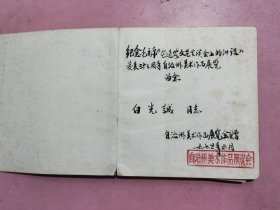 纪念毛主席《在延安文艺座谈会上的讲话》
发表三十三周年自治州美术作品展览
留念
白光诚 同志
自治州美术作品展览会赠
一九七五年五月
自治州美术作品展览会